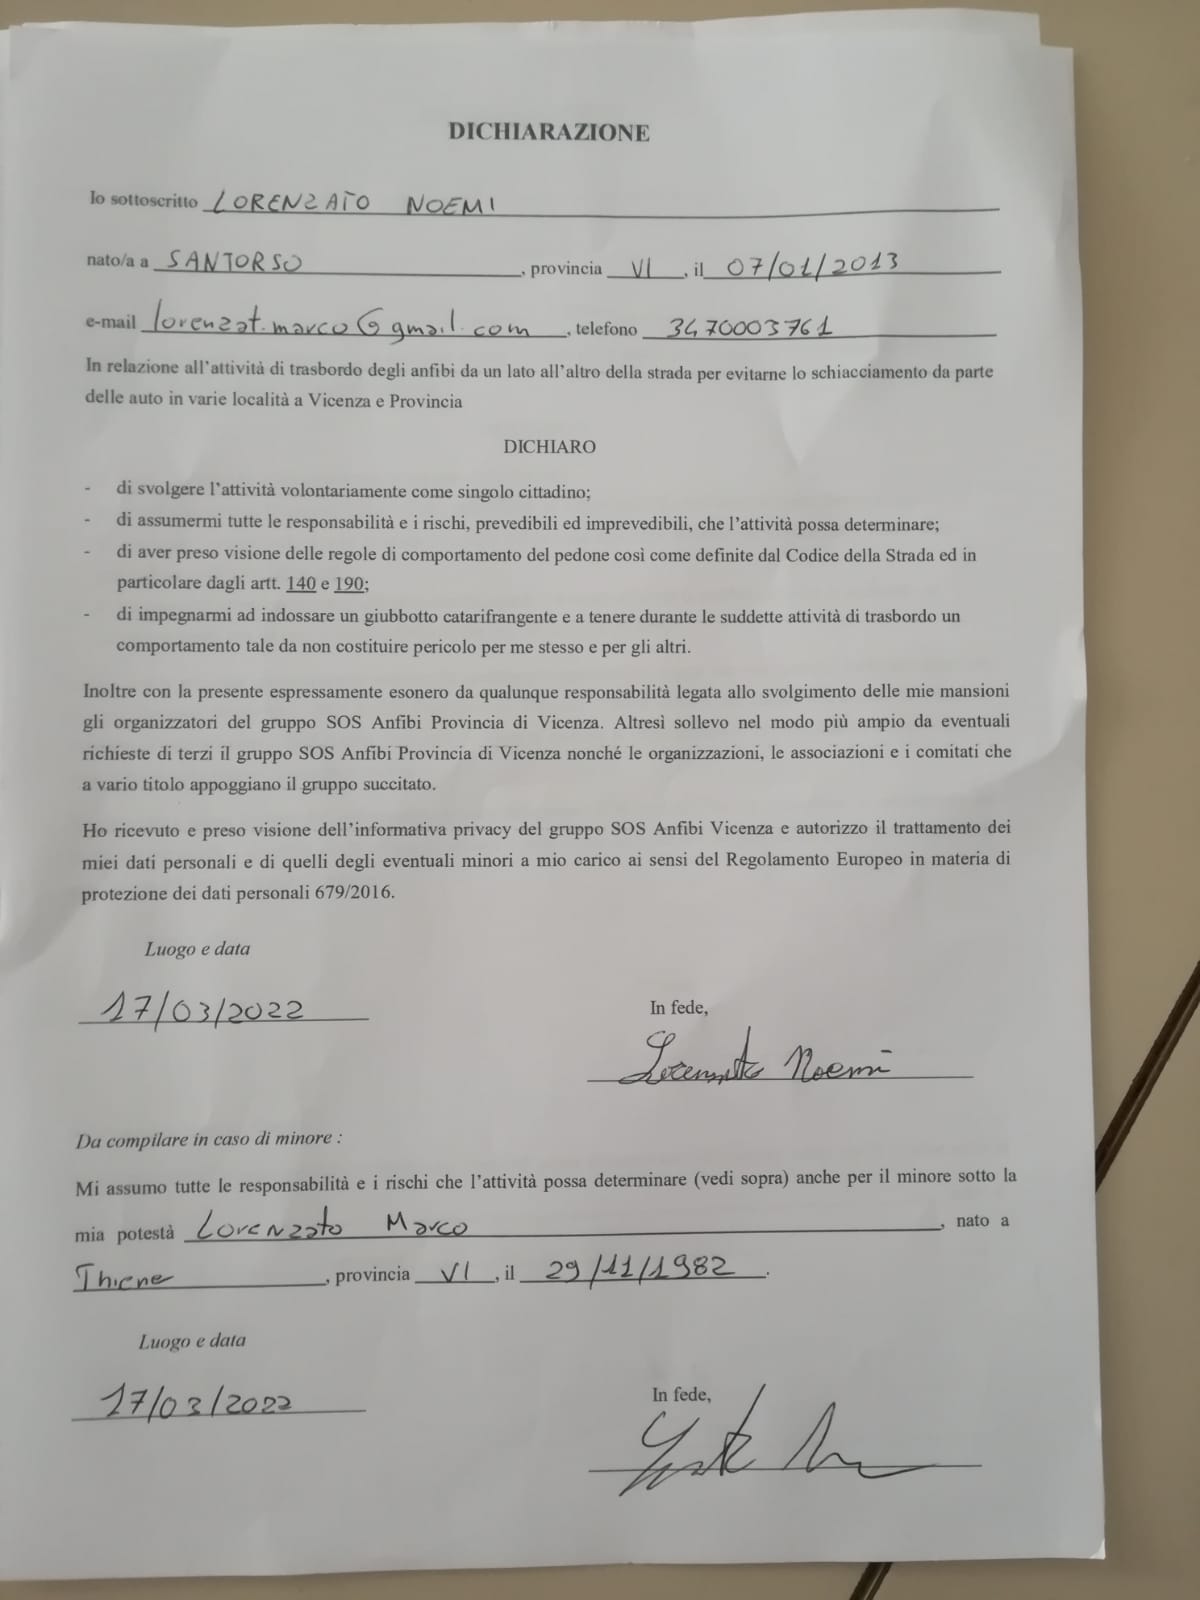 DICHIARAZIONE
Io sottoscritto LORENZATO NOEMI
nato/a a SANTORSO, provincia VI, il 07/01/2013
e-mail lorenzat.marco@gmail.com, telefono 3470003761
In relazione all'attività di trasbordo degli anfibi da un lato all'altro della strada per evitarne lo schiacciamento da parte
delle auto in varie località a Vicenza e Provincia
DICHIARO
- di svolgere l'attività volontariamente come singolo cittadino;
- di assumermi tutte le responsabilità e i rischi, prevedibili ed imprevedibili, che l'attività possa determinare;
- di aver preso visione delle regole di comportamento del pedone così come definite dal Codice della Strada ed in
particolare dagli artt. 140 e 190;
- di impegnarmi ad indossare un giubbotto catarifrangente e a tenere durante le suddette attività di trasbordo un
comportamento tale da non costituire pericolo per me stesso e per gli altri.
Inoltre con la presente espressamente esonero da qualunque responsabilità legata allo svolgimento delle mie mansioni
gli organizzatori del gruppo SOS Anfibi Provincia di Vicenza. Altresì sollevo nel modo più ampio da eventuali
richieste di terzi il gruppo SOS Anfibi Provincia di Vicenza nonché le organizzazioni, le associazioni e i comitati che
a vario titolo appoggiano il gruppo succitato.
Ho ricevuto e preso visione dell'informativa privacy del gruppo SOS Anfibi Vicenza e autorizzo il trattamento dei
miei dati personali e di quelli degli eventuali minori a mio carico ai sensi del Regolamento Europeo in materia di
protezione dei dati personali 679/2016.
Luogo e data
17/03/2022
In fede,
Lorenzato Noemi
Da compilare in caso di minore :
Mi assumo tutte le responsabilità e i rischi che l'attività possa determinare (vedi sopra) anche per il minore sotto la
mia potestà Lorenzato Marco, nato a
Thiene, provincia VI, il 29/11/1982.
Luogo e data
17/03/2022
In fede,